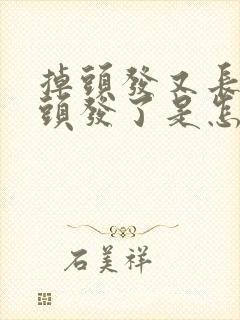 掉頭發又長
頭發了是怎
石美祥